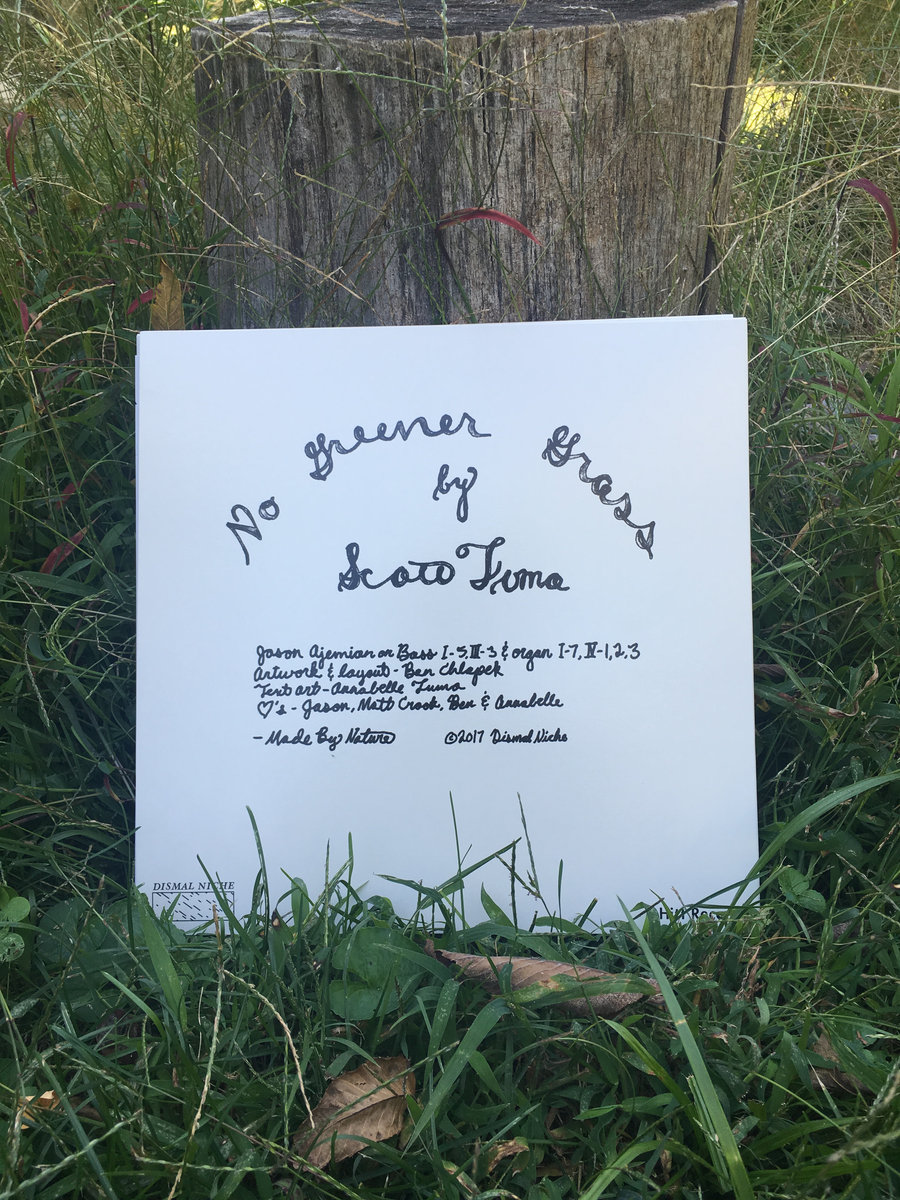 No Greener Grass
by
Scott Tuma
Jason Ajemian on Bass I-5, II-3 & organ I-7, II-1,2,3
Artwork & layout - Ben Chlapek
Text art - Annabelle Tuma
♡'s - Jason, Matt Crook, Ben & Annabelle
- Made By Nature ©2017 Dismal Niche
DISMAL NICHE